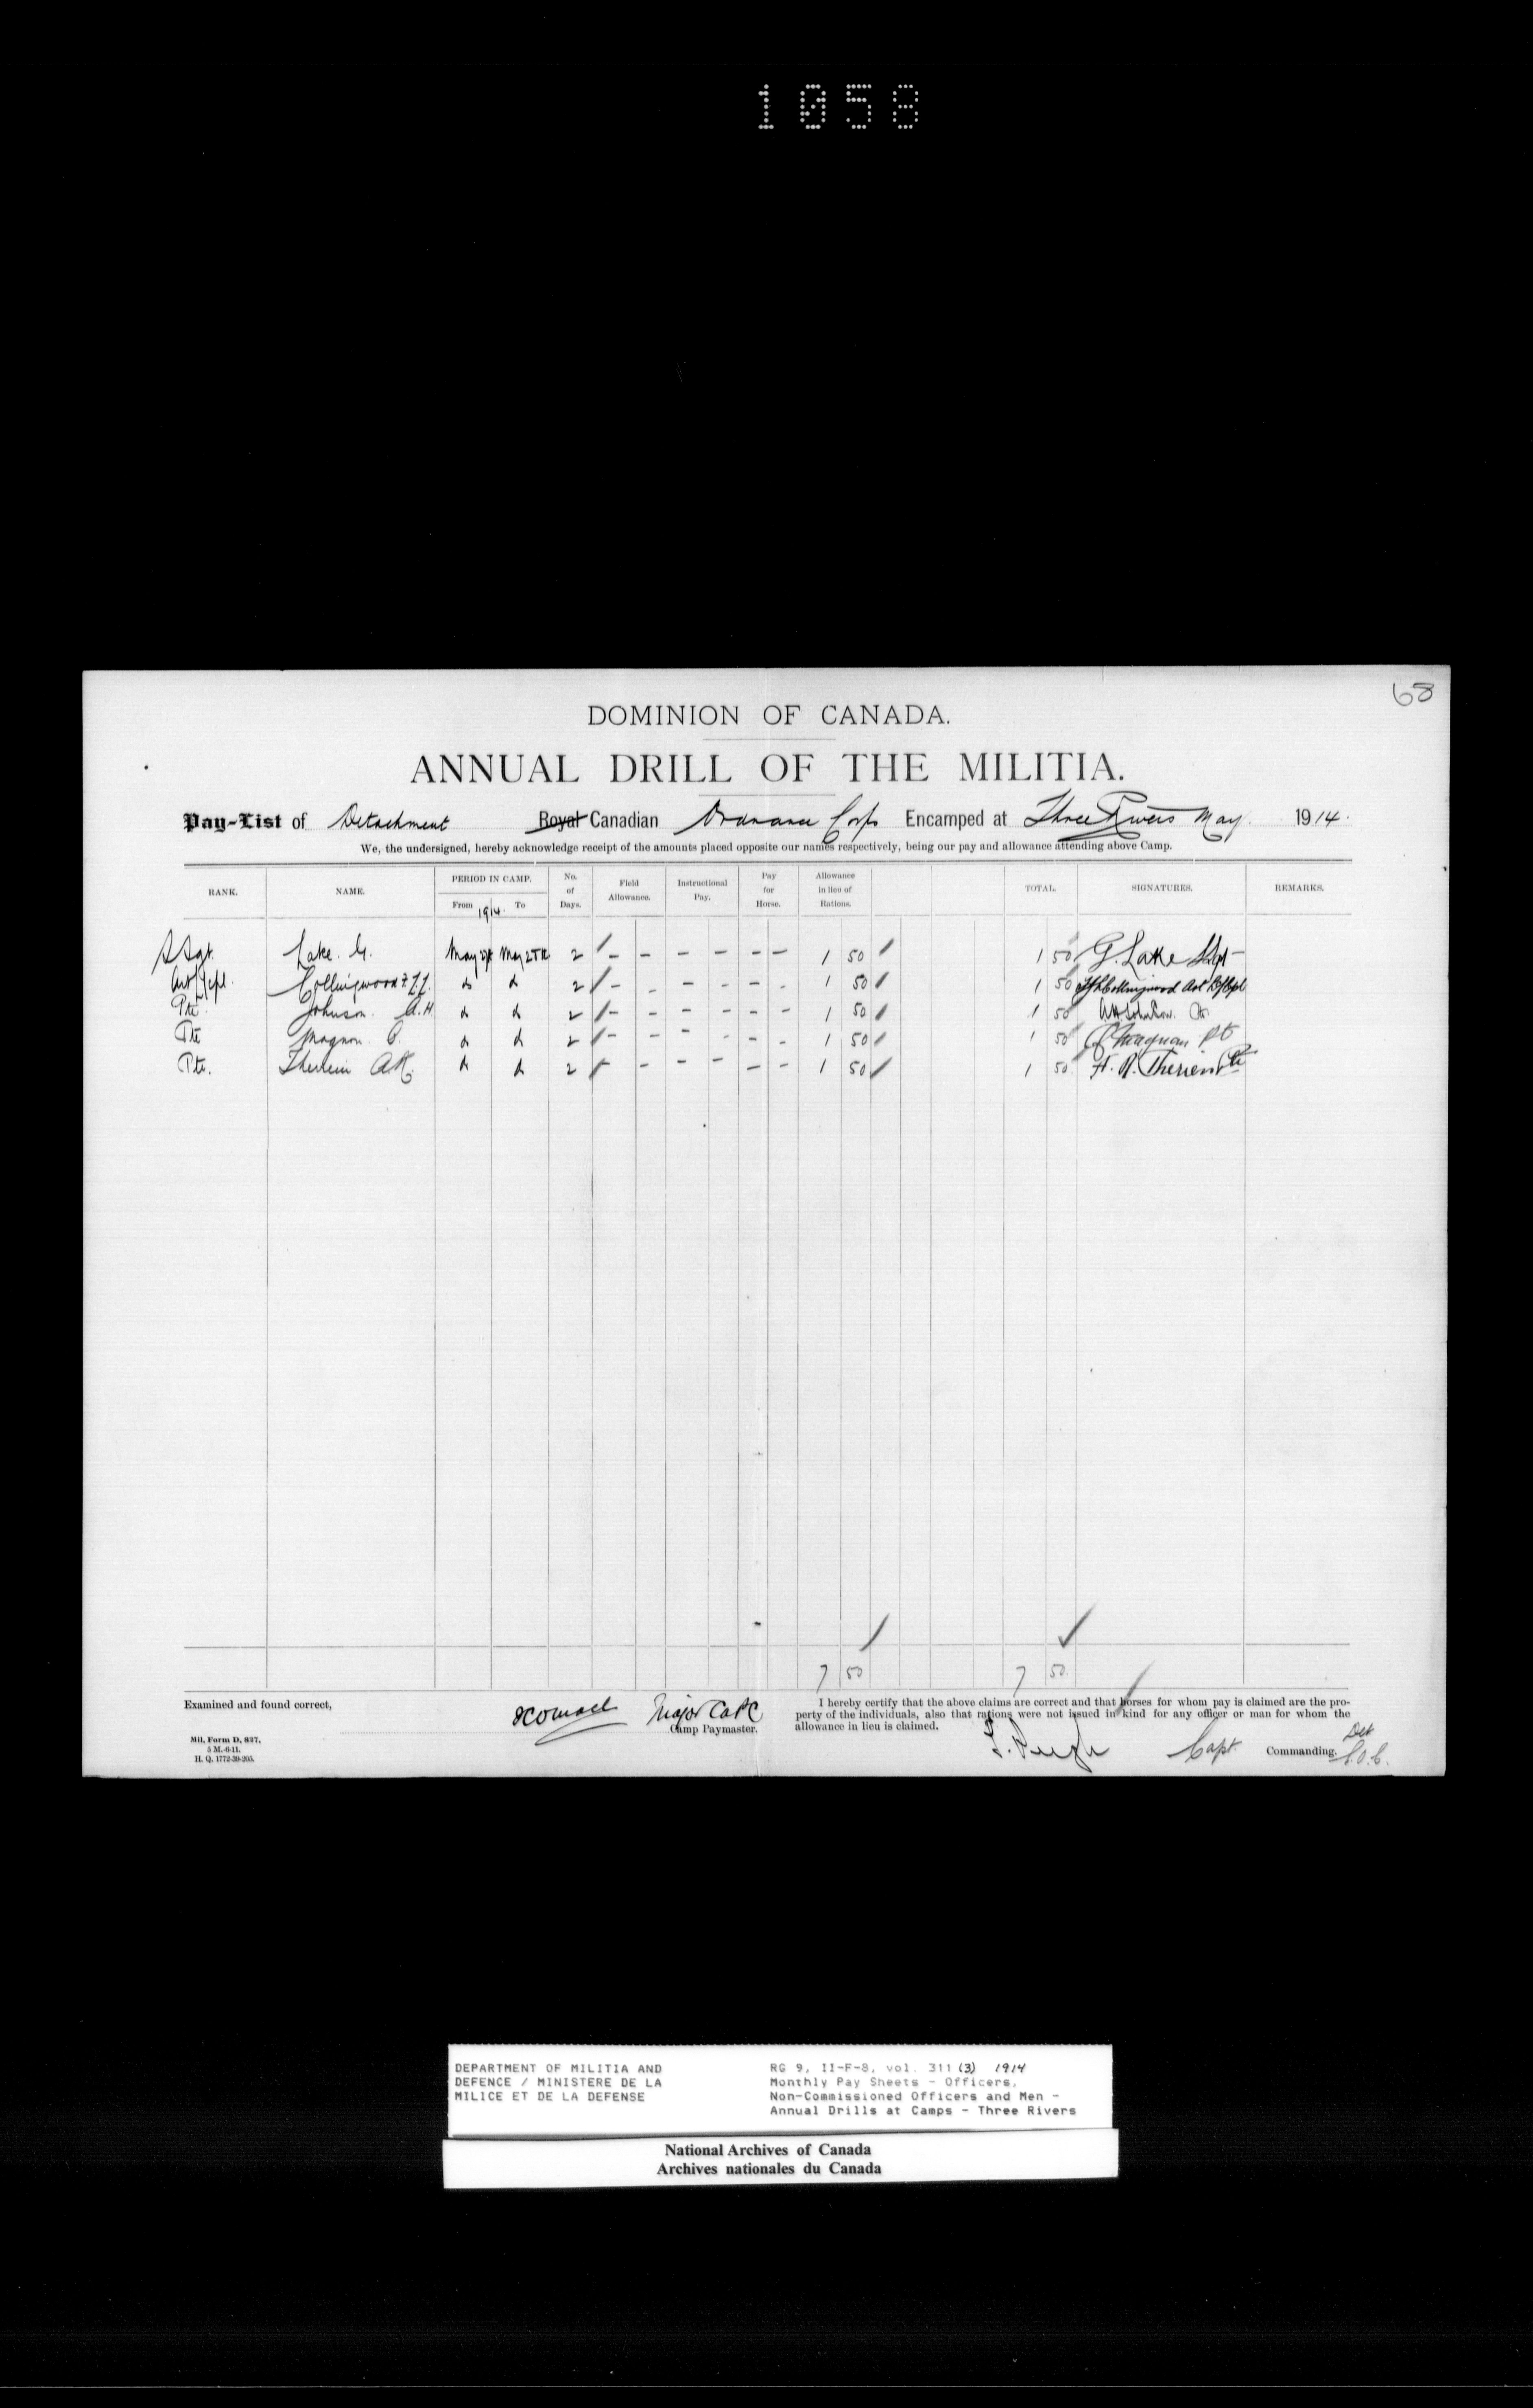 1058
68
DOMINION OF CANADA.
ANNUAL DRILL OF THE MILITIA.
Pay-List of Detachment Royal Canadian Ordnance Corps Encamped at Three Rivers May 1914.
We, the undersigned, hereby acknowledge receipt of the amounts placed opposite our names respectively, being our pay and allowance attending above Camp.
RANK. NAME. PERIOD IN CAMP. From 1914. To No. of Days. Field Allowance. Instructional Pay. Pay for Horse. Allowance in lieu of Rations. TOTAL. SIGNATURES. REMARKS.
S Sgt. Lake. G. May May 2 / - - - - - - 1 50 / 1 50 G. Lake SSgt
Collingwood d d 2 / - - - - - - 1 50 / 1 50 Collingwood
Pte Johnson. A.H d d 2 / - - - - - - 1 50 / 1 50
Pte Magnon d d 2 / - - - - - - 1 50 / 1 50 Magnan Pt
Pte. Therien A.R. d d 2 / - - - - - 1 50 / 1 50 A. R. Therien Pte
7 50 7 50
Examined and found correct,
Major CAPC
Camp Paymaster.
I hereby certify that the above claims are correct and that horses for whom pay is claimed are the pro-
perty of the individuals, also that rations were not issued in kind for any officer or man for whom the
allowance in lieu is claimed.
Capt. Commanding. Det C.O.C.
Mil. Form D. 827.
5 M.-6-11.
H. Q. 1772-39-205.
DEPARTMENT OF MILITIA AND
DEFENCE / MINISTERE DE LA
MILICE ET DE LA DEFENSE
RG 9, II-F-8, vol. 311 (3) 1914
Monthly Pay Sheets - Officers,
Non-Commissioned Officers and Men -
Annual Drills at Camps - Three Rivers
National Archives of Canada
Archives nationales du Canada